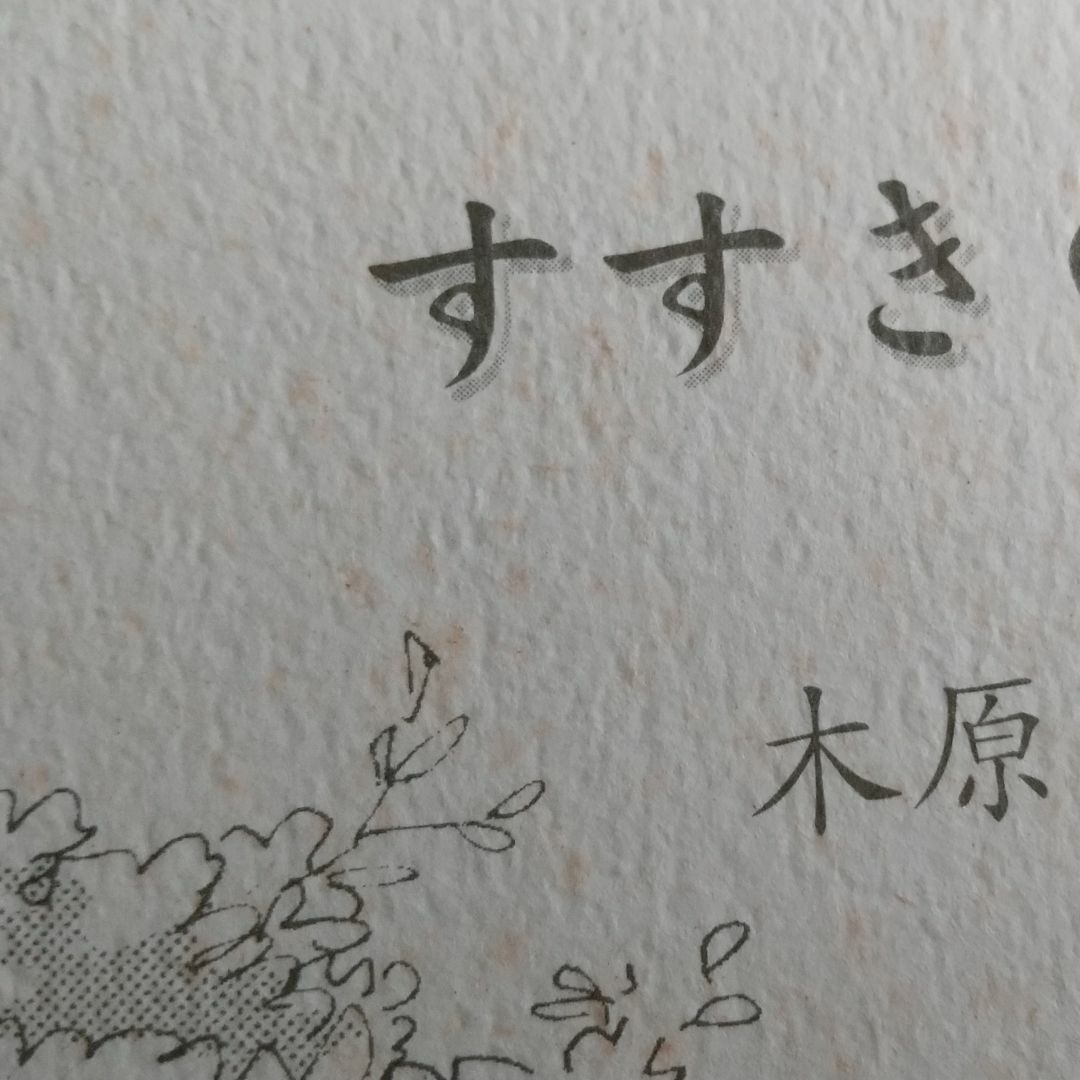 すすき
木原